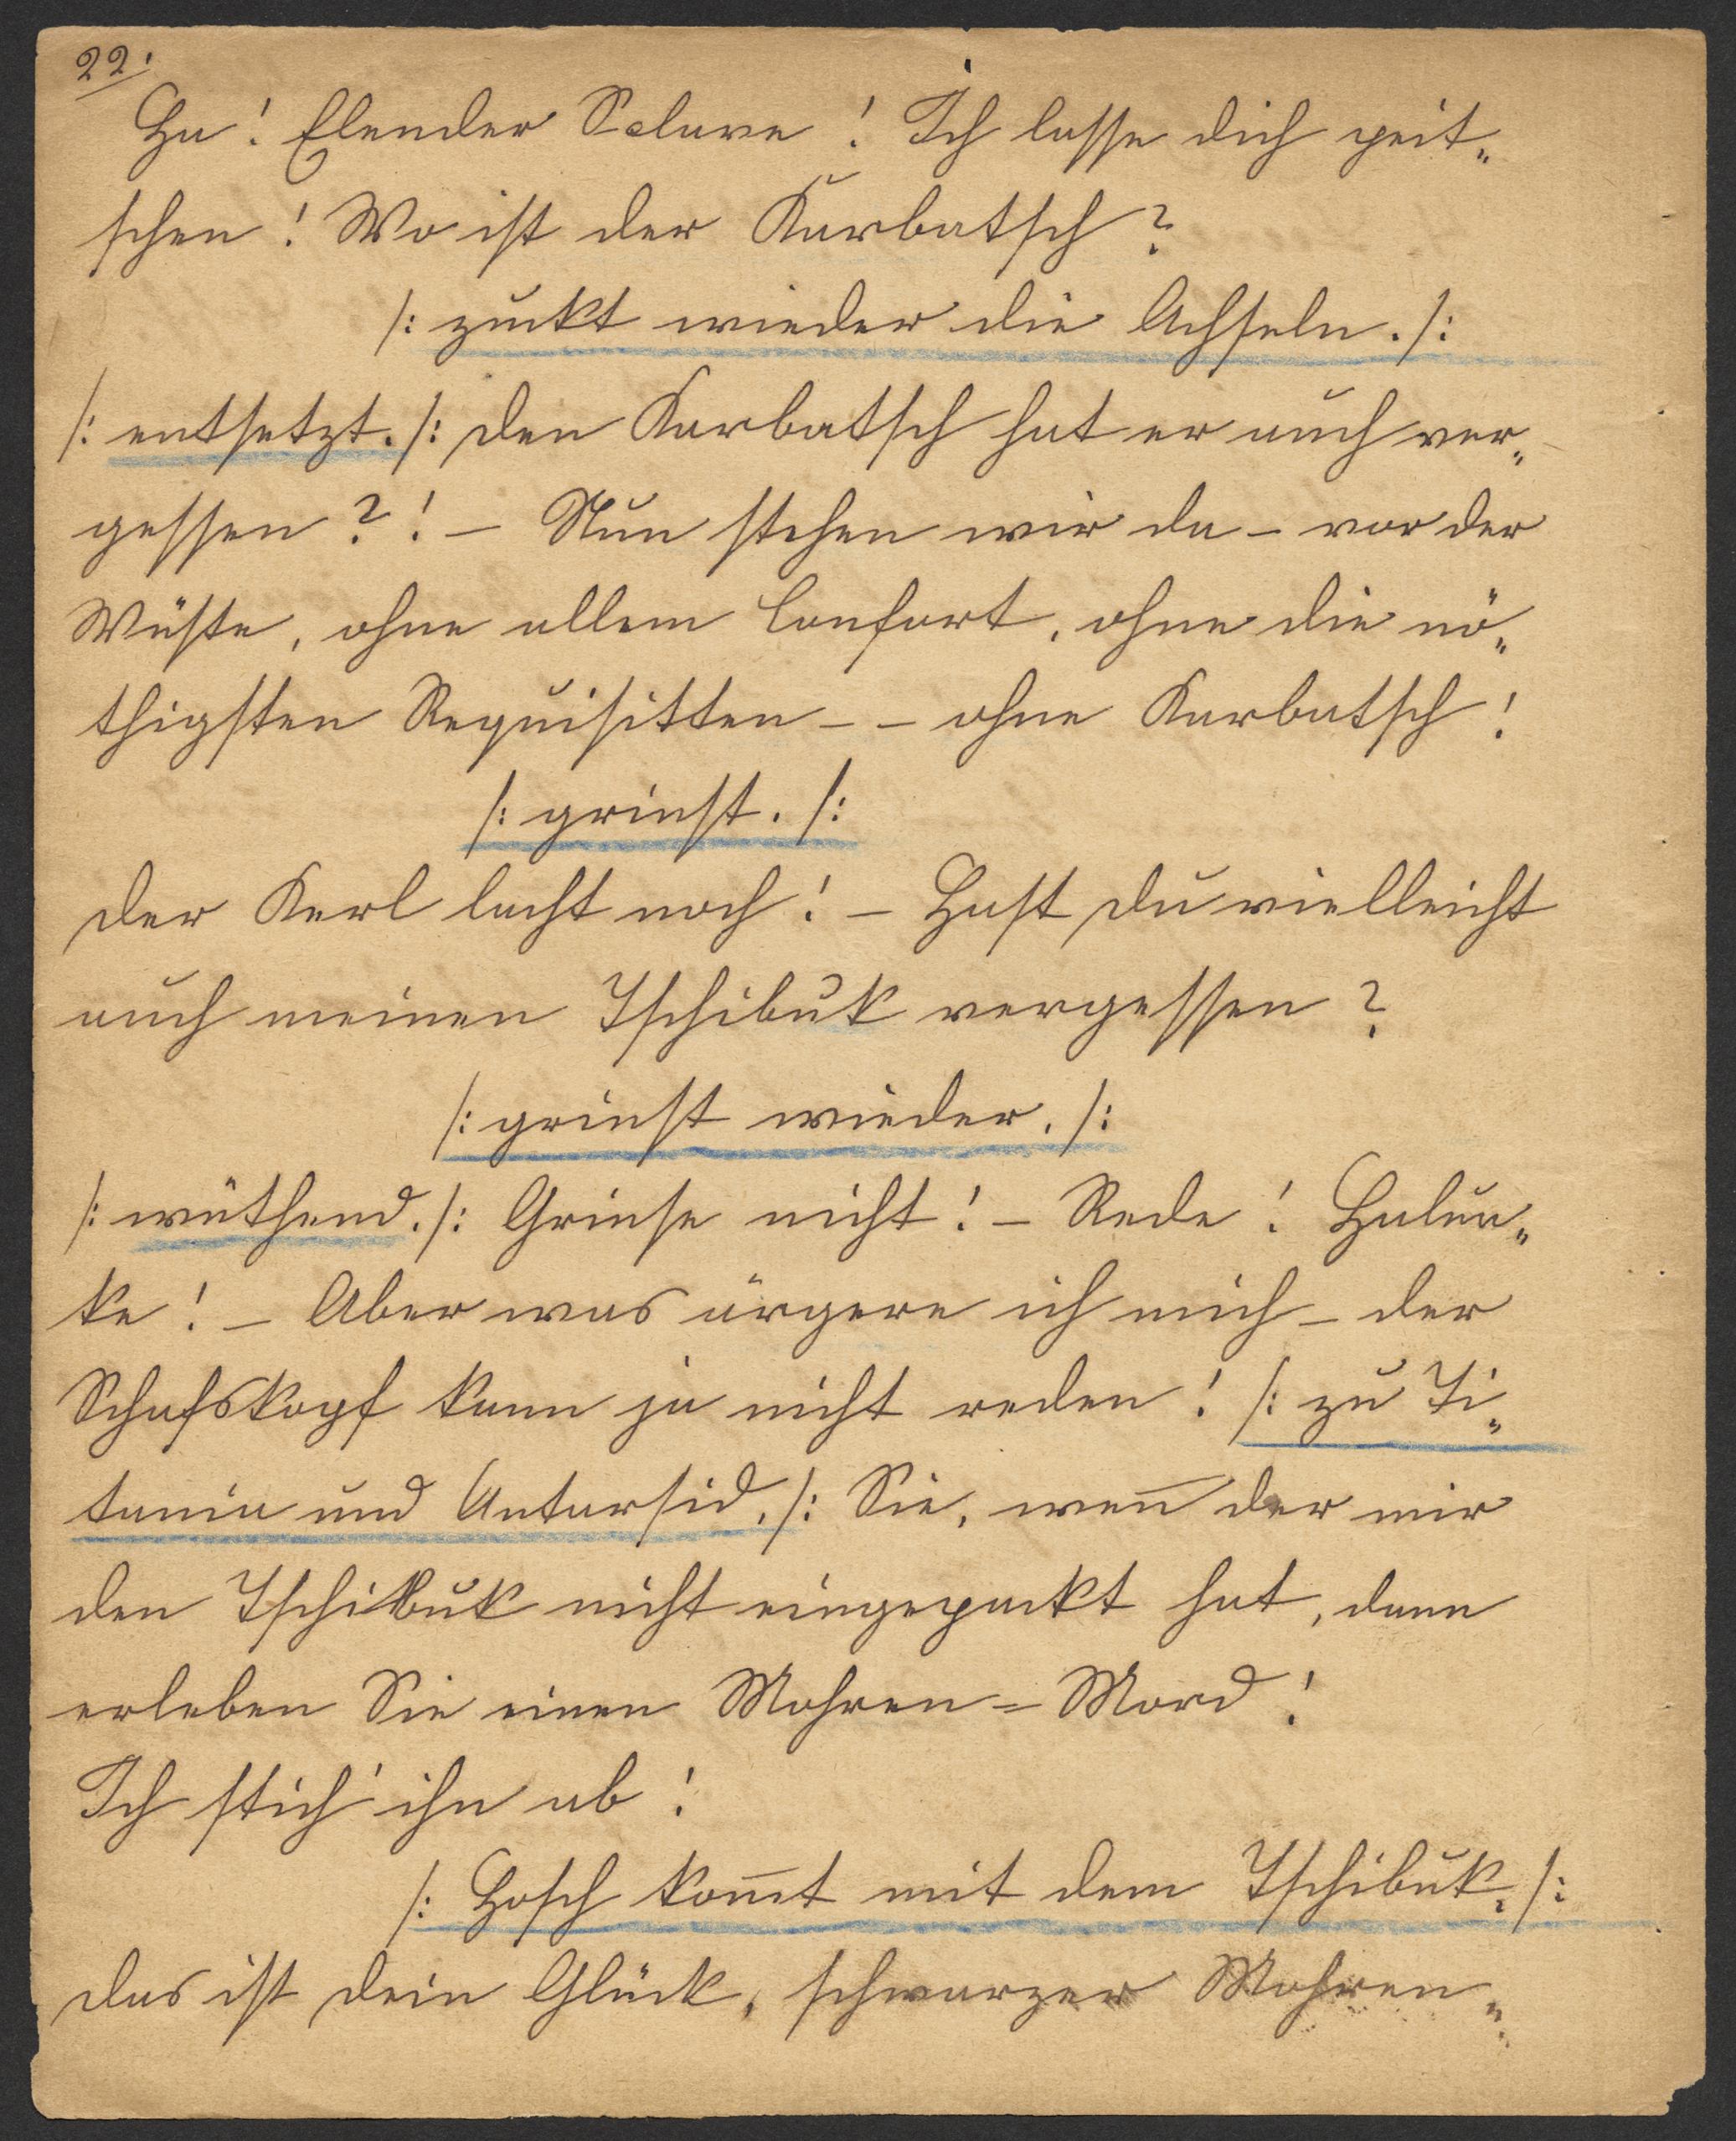 22.
Ha! Elender Sclave! Ich lasse dich peit„
schen! Wo ist der Karbatsch?
/: zuckt wieder die Achseln. /:
/: entsetzt. /: Den Karbatsch hat er auch ver„
gessen?! – Nun stehen wir da – vor der
Wüste, ohne allem Confort, ohne die nö„
thigsten Requisitten – – ohne Karbatsch!
/: grinst. /:
Der Kerl lacht noch! – Hast du vielleicht
auch meinen Tschibuk vergessen?
/: grinst wieder. /:
/: wüthend. /: Grinse nicht! – Rede! Halun„
ke! – Aber was ärgere ich mich – der
Schafskopf kann ja nicht reden! /: zu Ti„
tania und Antarsid. /: Sie, weñ der mir
den Tschibuk nicht eingepackt hat, dann
erleben Sie einen Mohren=Mord!
Ich stich' ihn ab!
/: Hosch kom̄t mit dem Tschibuk. /:
Das ist dein Glück, schwarzer Mohren„